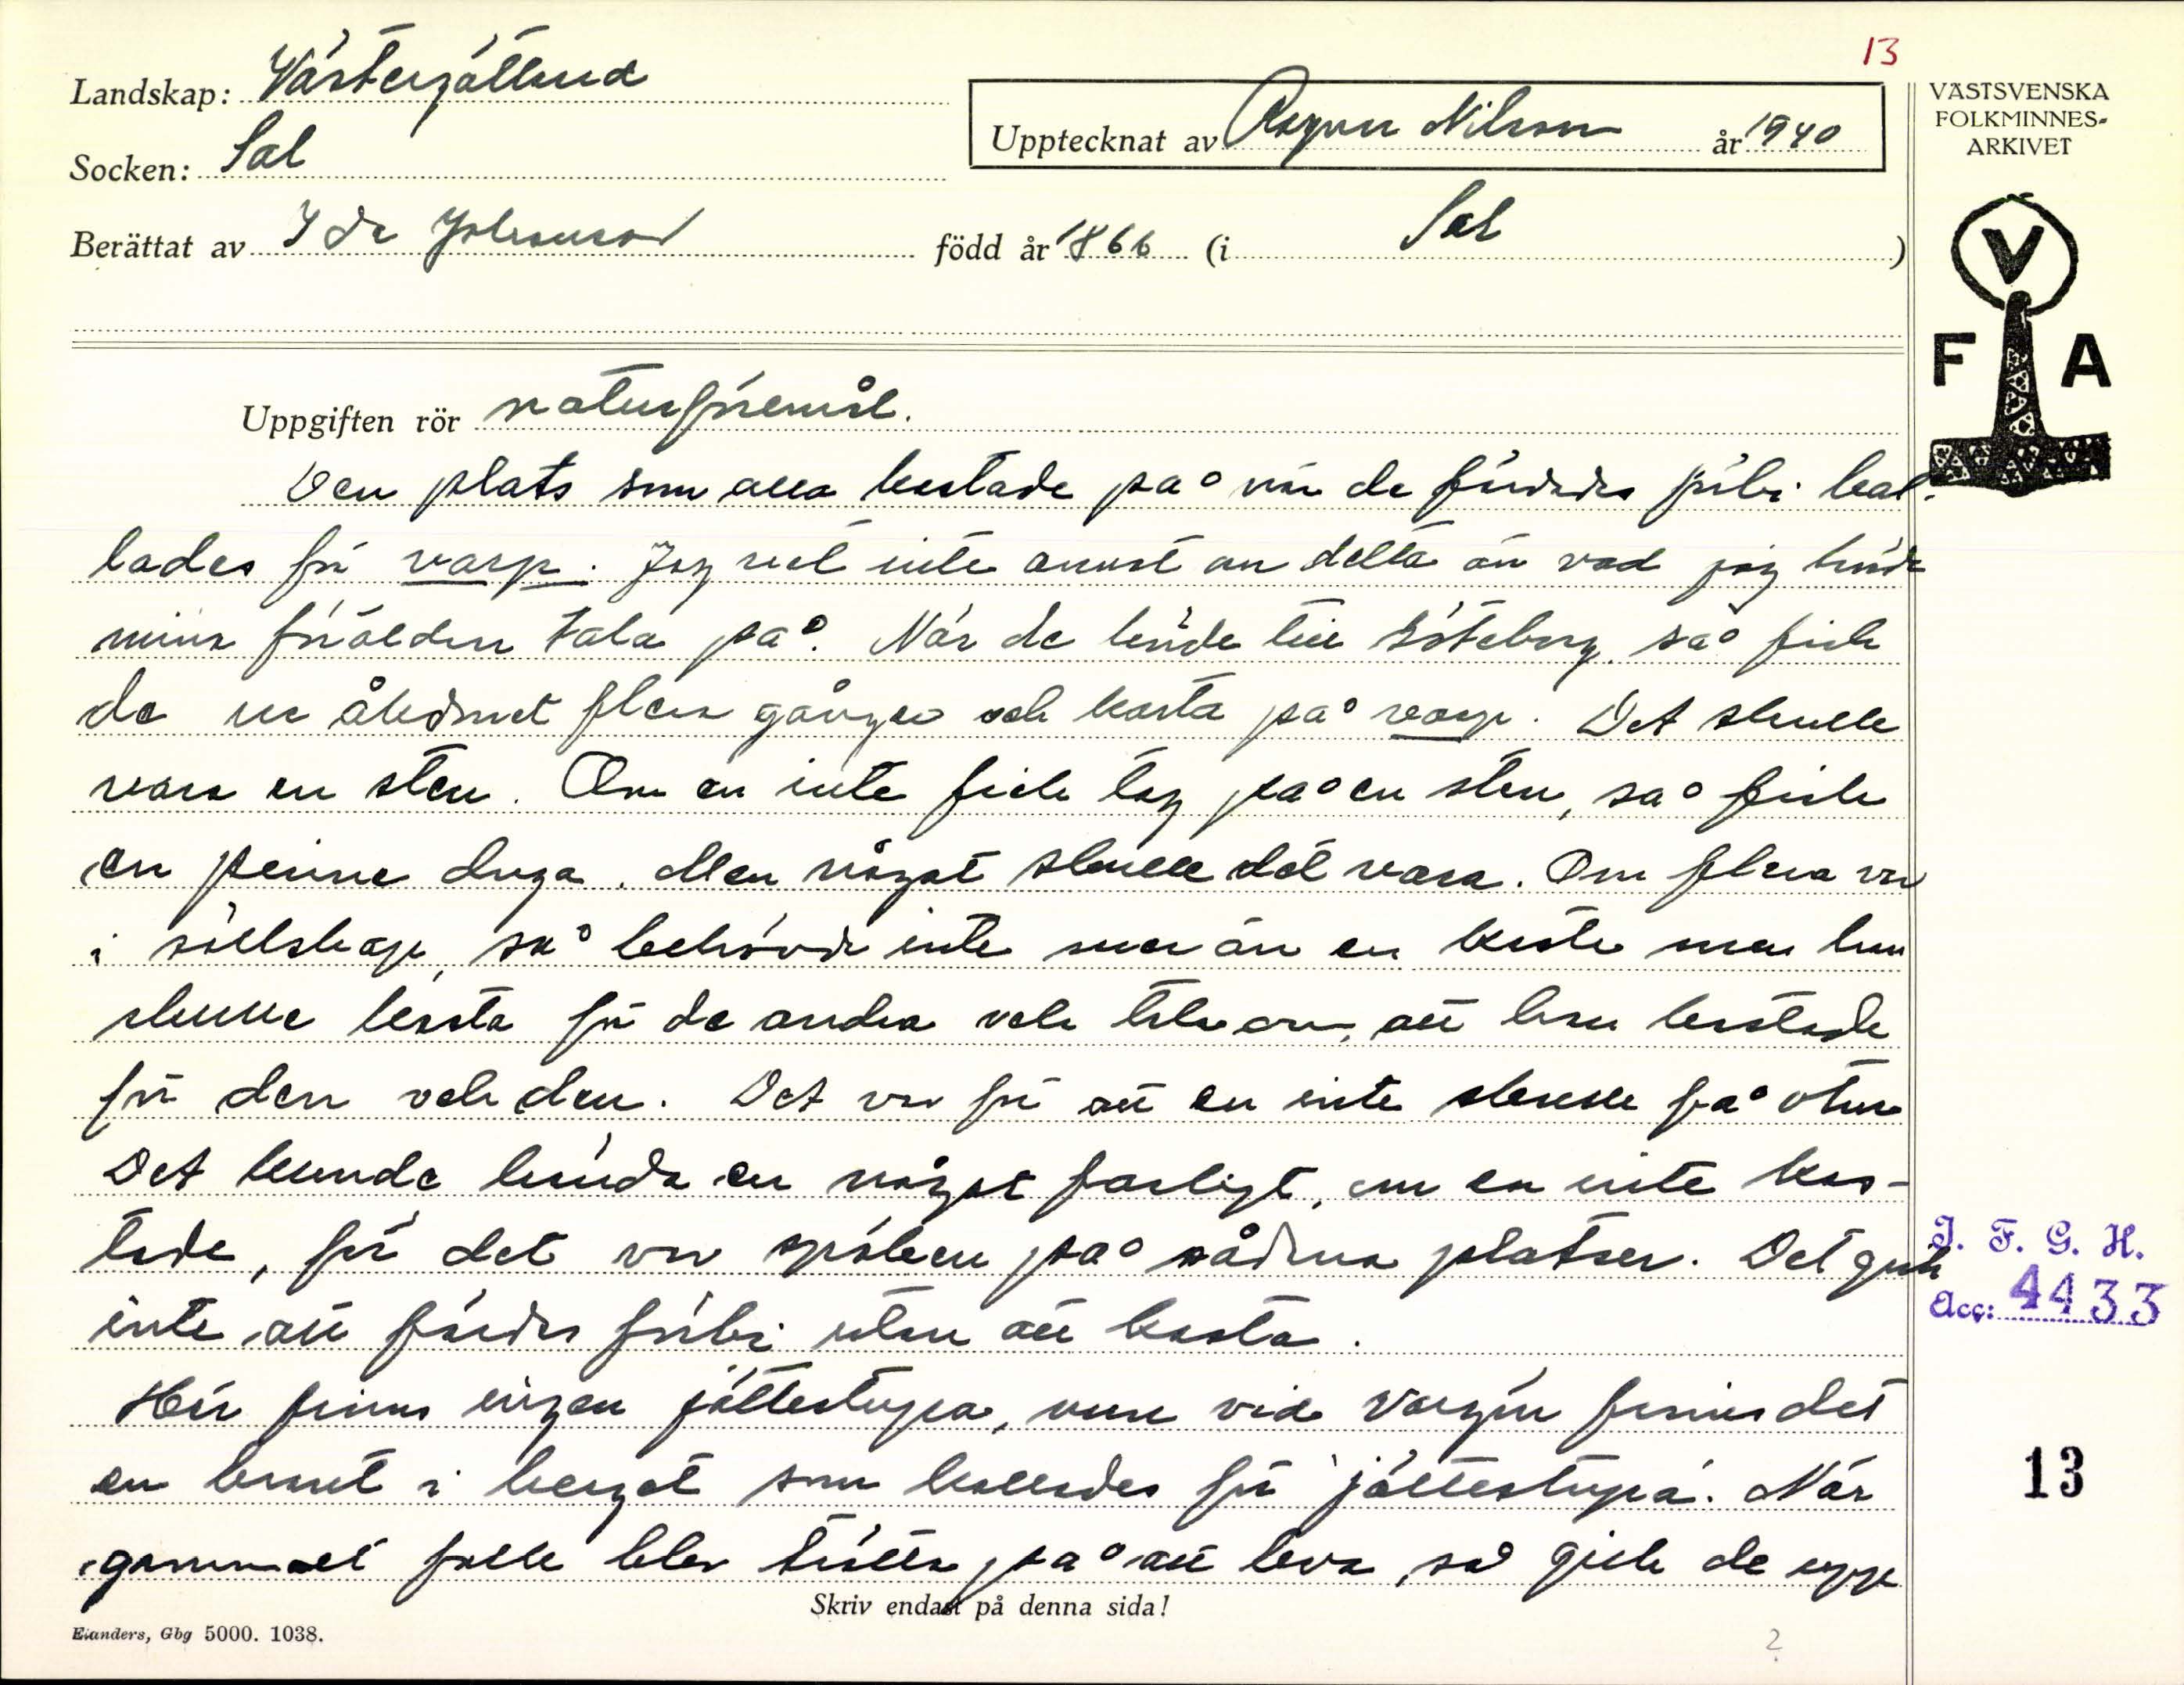 13
Landskap: Västergötland
Upptecknat av Ragnar Nilsson år 1940
VÄSTSVENSKA
FOLKMINNES-
ARKIVET
Socken: Sal
Berättat av Ida Johansson född år 1866 (i Sal)
V
F A
Uppgiften rör naturföremål.
Den plats som alla kastade på när de färdades förbi kal-
lades för varp. Jag vet inte annat om detta än vad jag hörde
mina föräldrar tala på. När de körde till Göteborg så fick
de ur åkdonet flera gånger och kasta på varp. Det skulle
vara en sten. Om en inte fick tag på en sten, så fick
en pinne duga. Men något skulle det vara. Om flera var
i sällskap, så behövde inte mer än en kasta men han
skulle kasta för de andra och tala om, att han kastade
för den och den. Det var för att en inte skulle få otur
Det kunde hända en något farligt, om en inte kas-
tade, för det var spöken på sådana platser. Det gick
inte att färdas förbi utan att kasta.
J. F. G. H.
Acc: 4433
Här finns ingen jättestupa, men vid Vargön finns det
en brant i berget som kallades för "jättestupa". När
13
gammalt folk blev trötta på att leva, så gick de upp
Skriv endast på denna sida!
Elanders, Gbg 5000. 1038.
2